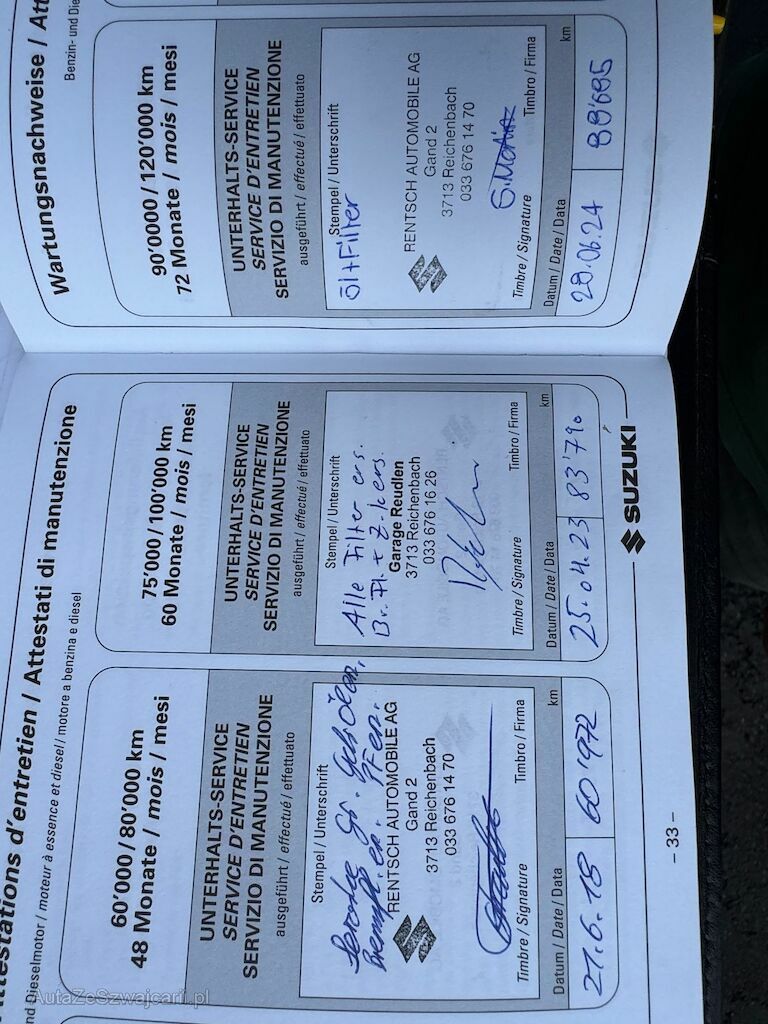 Attestations d'entretien / Attestati di manutenzione
nd Dieselmotor / moteur à essence et diesel / motore a benzina e diesel
60'000 / 80'000 km
48 Monate / mois / mesi
UNTERHALTS-SERVICE
SERVICE D'ENTRETIEN
SERVIZIO DI MANUTENZIONE
ausgeführt / effectué / effettuato
Stempel / Unterschrift
RENTSCH AUTOMOBILE AG
Gand 2
3713 Reichenbach
033 676 14 70
Timbre / Signature
Timbro / Firma
Datum / Date / Data
km
21.6.18
60'972
75'000 / 100'000 km
60 Monate / mois / mesi
UNTERHALTS-SERVICE
SERVICE D'ENTRETIEN
SERVIZIO DI MANUTENZIONE
ausgeführt / effectué / effettuato
Stempel / Unterschrift
Alle Filter ers.
Br. Fl. + Z-Kers.
Garage Reudlen
3713 Reichenbach
033 676 16 26
Timbre / Signature
Timbro / Firma
Datum / Date / Data
km
25.04.23
83'790
SUZUKI
– 33 –
Wartungsnachweise / Att
Benzin- und Die
90'0000 / 120'000 km
72 Monate / mois / mesi
UNTERHALTS-SERVICE
SERVICE D'ENTRETIEN
SERVIZIO DI MANUTENZIONE
ausgeführt / effectué / effettuato
Stempel / Unterschrift
Öl+Filter
RENTSCH AUTOMOBILE AG
Gand 2
3713 Reichenbach
033 676 14 70
Timbre / Signature
Timbro / Firma
Datum / Date / Data
km
20.06.24
88'695
AutaZeSzwajcarii.pl